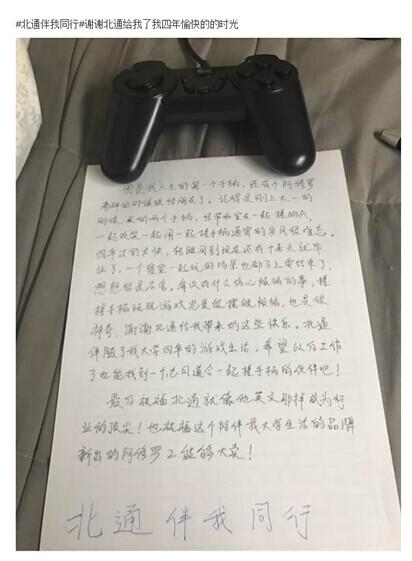 #北通伴我同行#谢谢北通给我了我四年愉快的的时光
这是我人生的第一个手柄,还有个阿修罗
毕业的时候送给朋友了,记得是刚上大一的
时候,买的两个手柄,经常和室友一起搓NBA,
一起欢笑一起闹一起搓手柄通宵的岁月很难忘。
四年过的太快,转眼间到现在还有十来天就毕
业了,一个寝室一起玩的场景也都马上要结束了,
想想都是不舍。每次有什么伤心烦恼的事,搓
搓手柄玩玩游戏总是能摆脱烦恼,也是很
神奇,谢谢北通给我带来的这些快乐。北通
伴随了我大学四年的游戏生活,希望以后工作
了也能找到一个志同道合一起搓手柄的伙伴吧!
最后祝福北通就像他英文那样成为行
业的顶尖!也祝福这个陪伴我大学生活的品牌
新出的阿修罗2能够大卖!
北通伴我同行